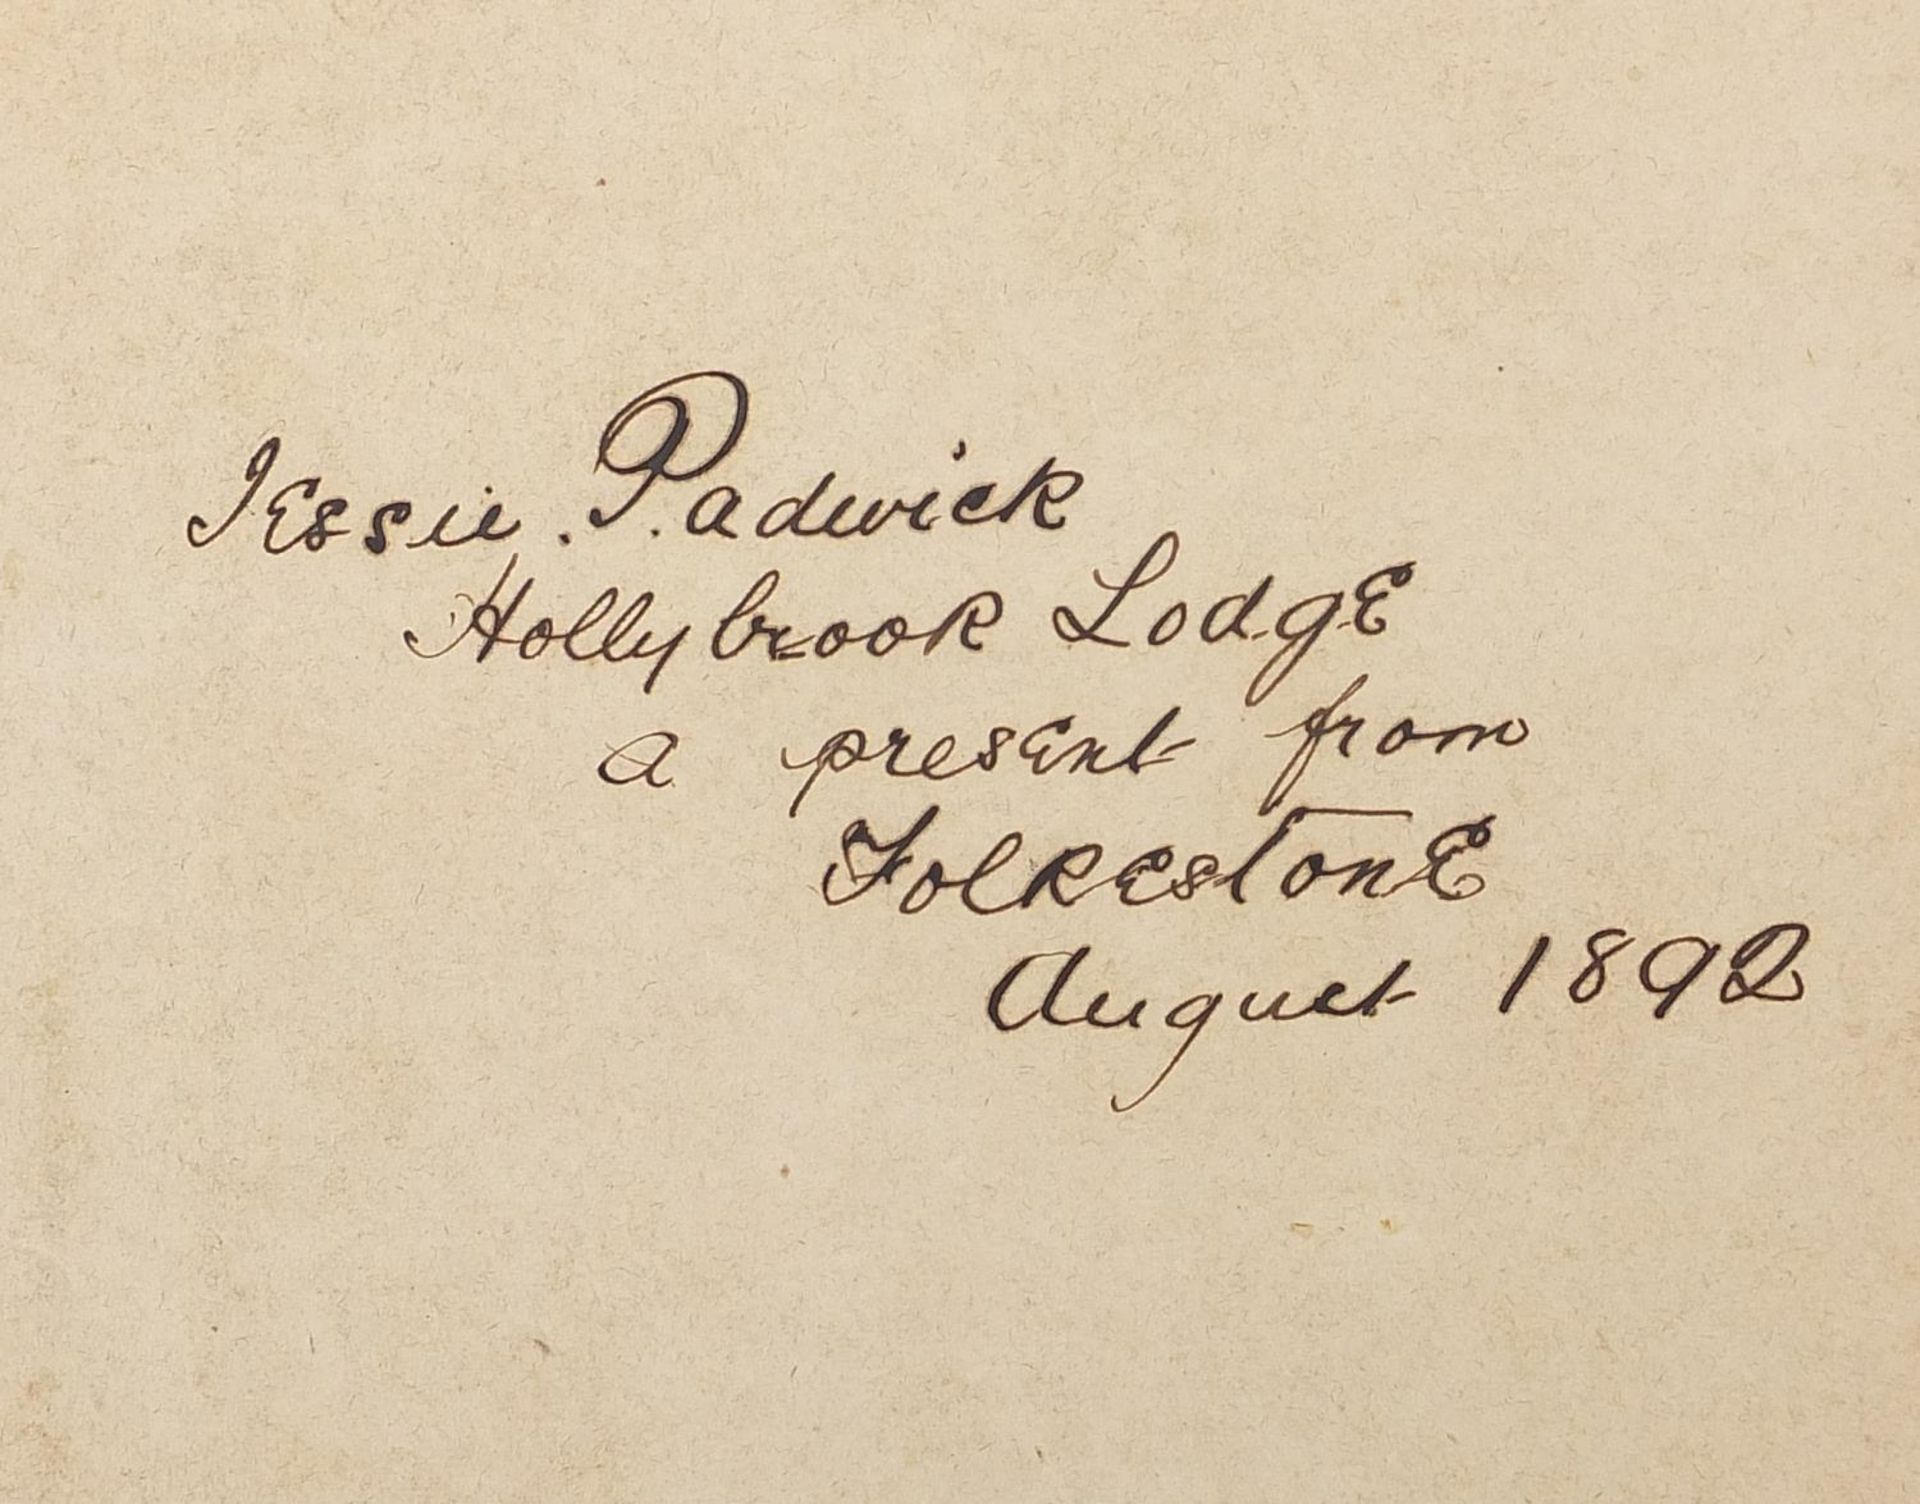 Jessie . Padwick
Hollybrook Lodge
a present from
Folkestone
August 1892